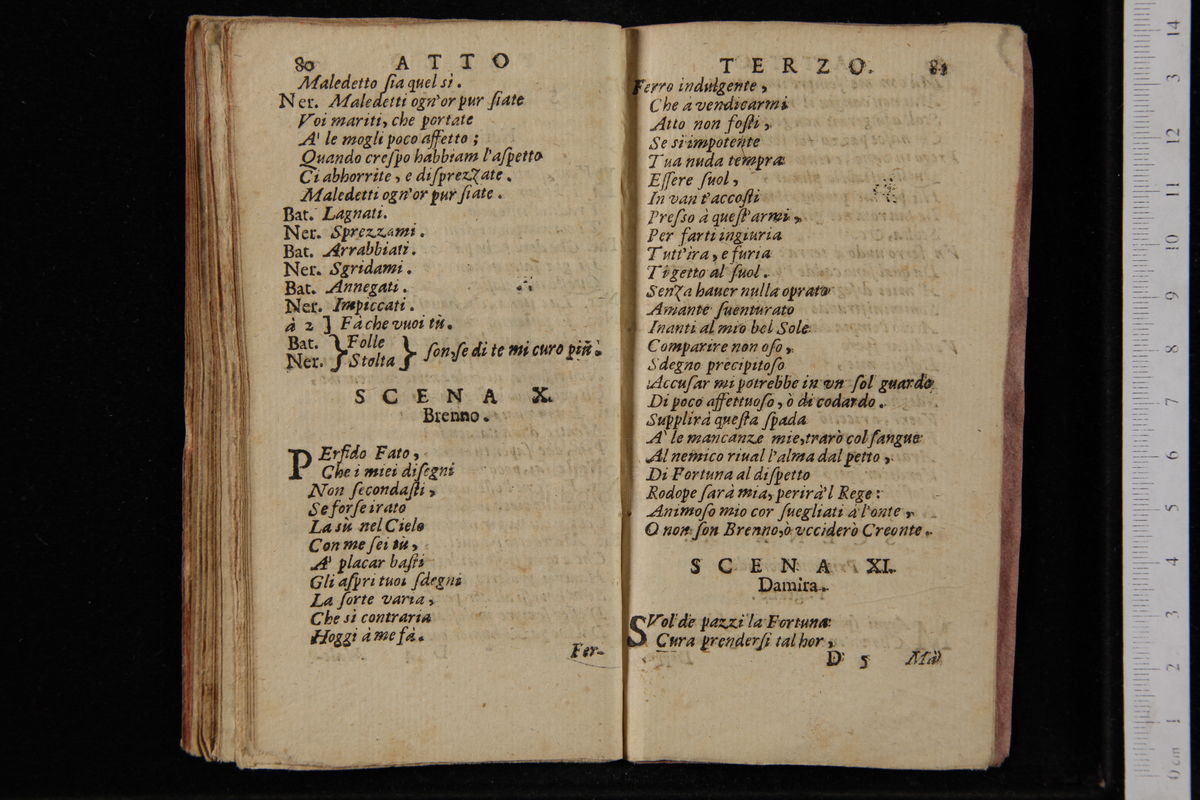 80 ATTO
Maledetto ſia quel sì.
Ner. Maledetti ogn'or pur ſiate
Voi mariti, che portate
A' le mogli poco affetto;
Quando creſpo habbiam l'aſpetto
Ci abhorrite, e diſprezzate.
Maledetti ogn'or pur ſiate.
Bat. Lagnati.
Ner. Sprezzami.
Bat. Arrabbiati.
Ner. Sgridami.
Bat. Annegati.
Ner. Impiccati.
à 2 ] Fà che vuoi tù.
Bat. } Folle } ſon, ſe di te mi curo più.
Ner. } Stolta }
SCENA X.
Brenno.
PErfido Fato,
Che i miei diſegni
Non ſecondaſti,
Se forſe irato
La sù nel Cielo
Con me ſei tù,
A' placar baſti
Gli aſpri tuoi ſdegni
La ſorte varia,
Che sì contraria
Hoggi à me fà.
Fer-
TERZO. 81
Ferro indulgente,
Che a vendicarmi
Atto non foſti,
Se sì impotente
Tua nuda tempra
Eſſere ſuol,
In van t'accoſti
Preſſo à queſt'armi,
Per farti ingiuria
Tutt'ira, e furia
Ti getto al ſuol.
Senza hauer nulla oprato
Amante ſuenturato
Inanti al mio bel Sole
Comparire non oſo,
Sdegno precipitoſo
Accuſar mi potrebbe in vn ſol guardo
Di poco affettuoſo, ò di codardo.
Supplirà queſta ſpada
A' le mancanze mie, trarò col ſangue
Al nemico riual l'alma dal petto,
Di Fortuna al diſpetto
Rodope ſarà mia, perirà'l Rege:
Animoſo mio cor ſuegliati à l'onte,
O non ſon Brenno, ò vcciderò Creonte.
SCENA XI.
Damira.
SVol de pazzi la Fortuna
Cura prenderſi tal hor,
D 5 Mà